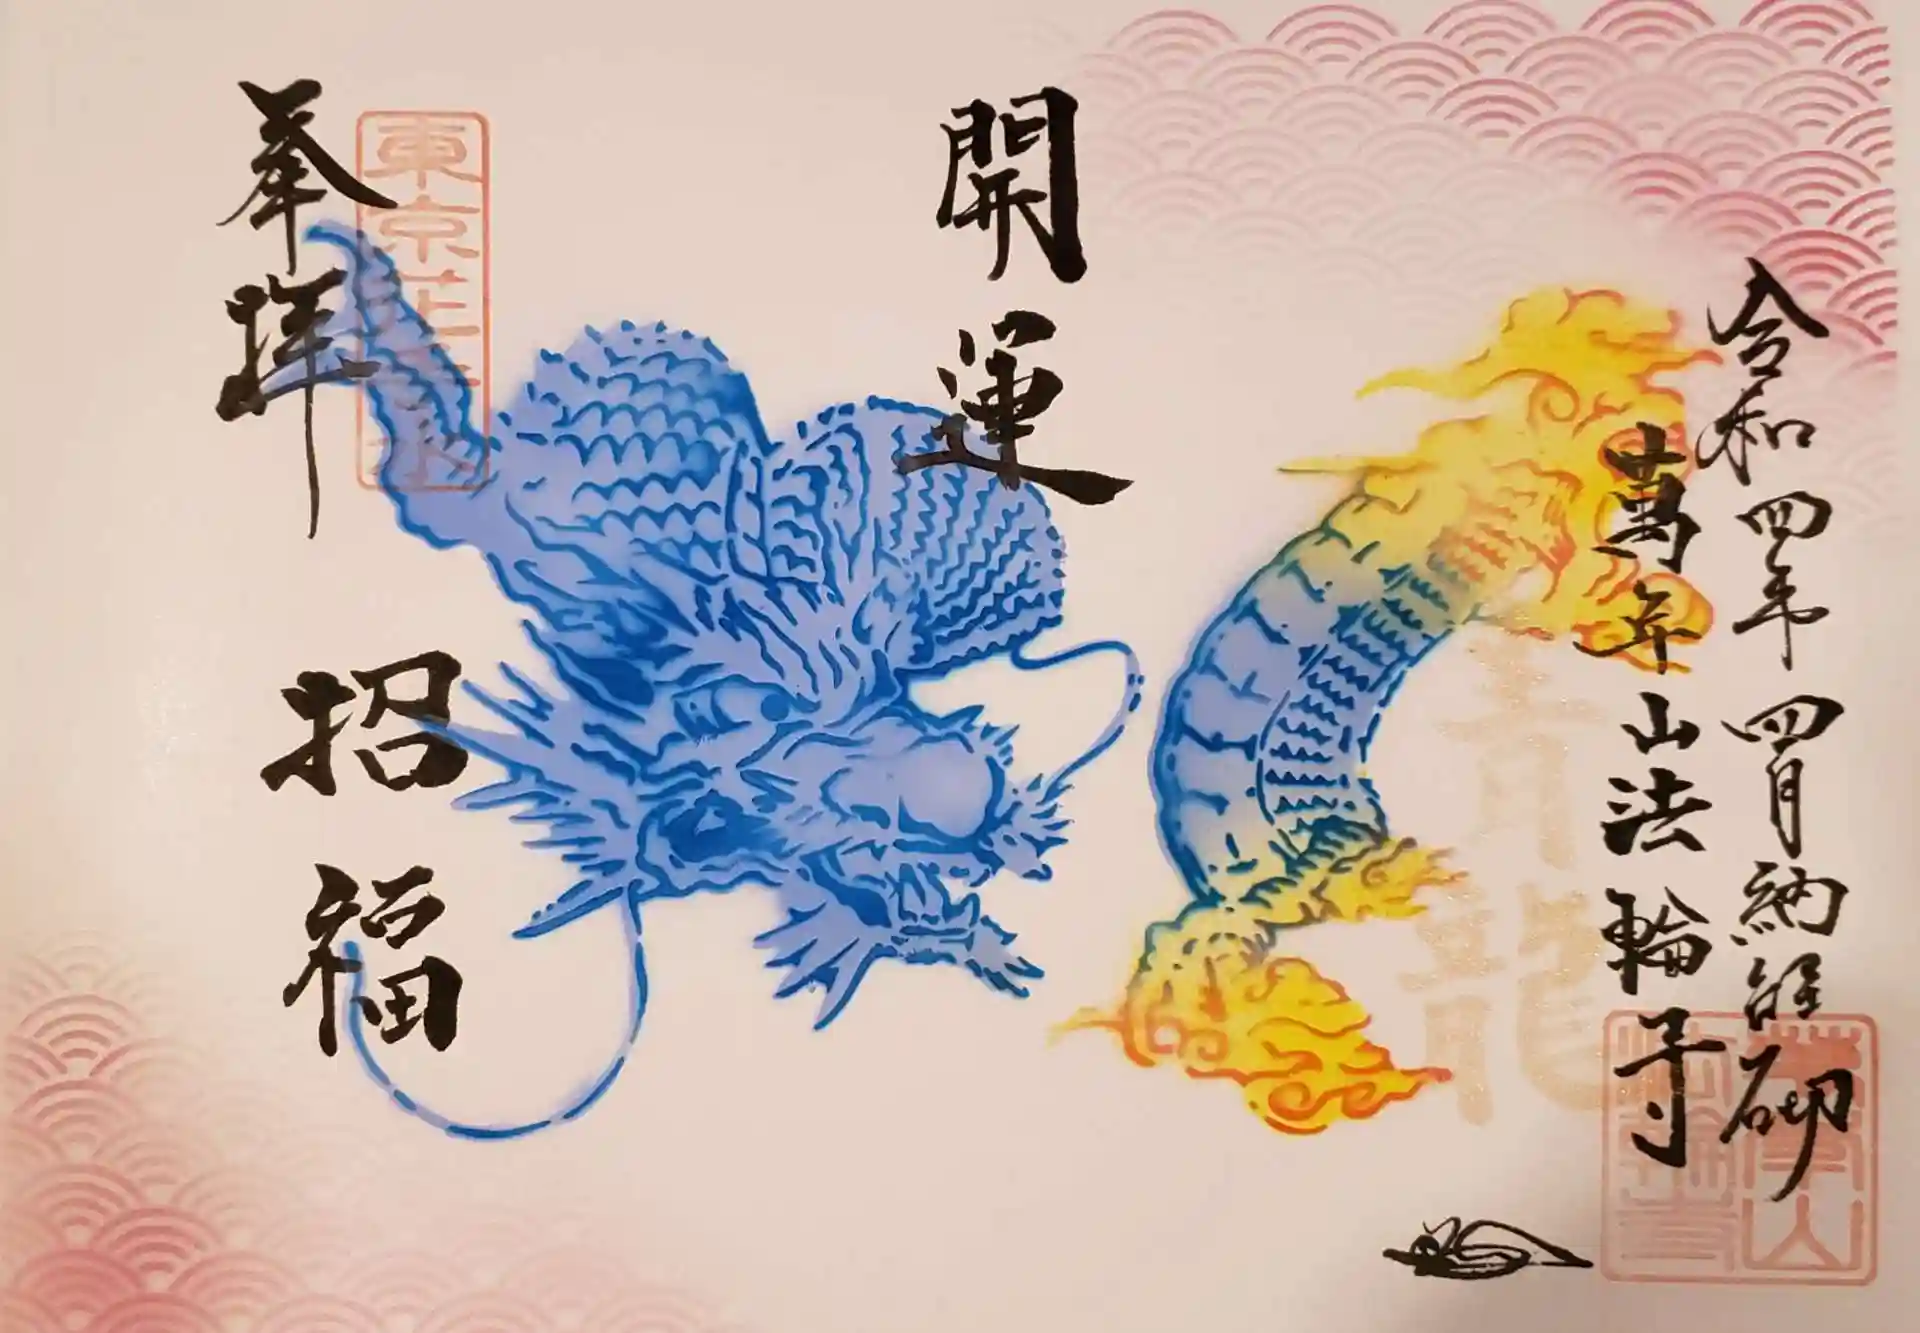 令和四年四月納経砌
萬年山法輪寺
青龍
開運
招福
奉拝
東京芝